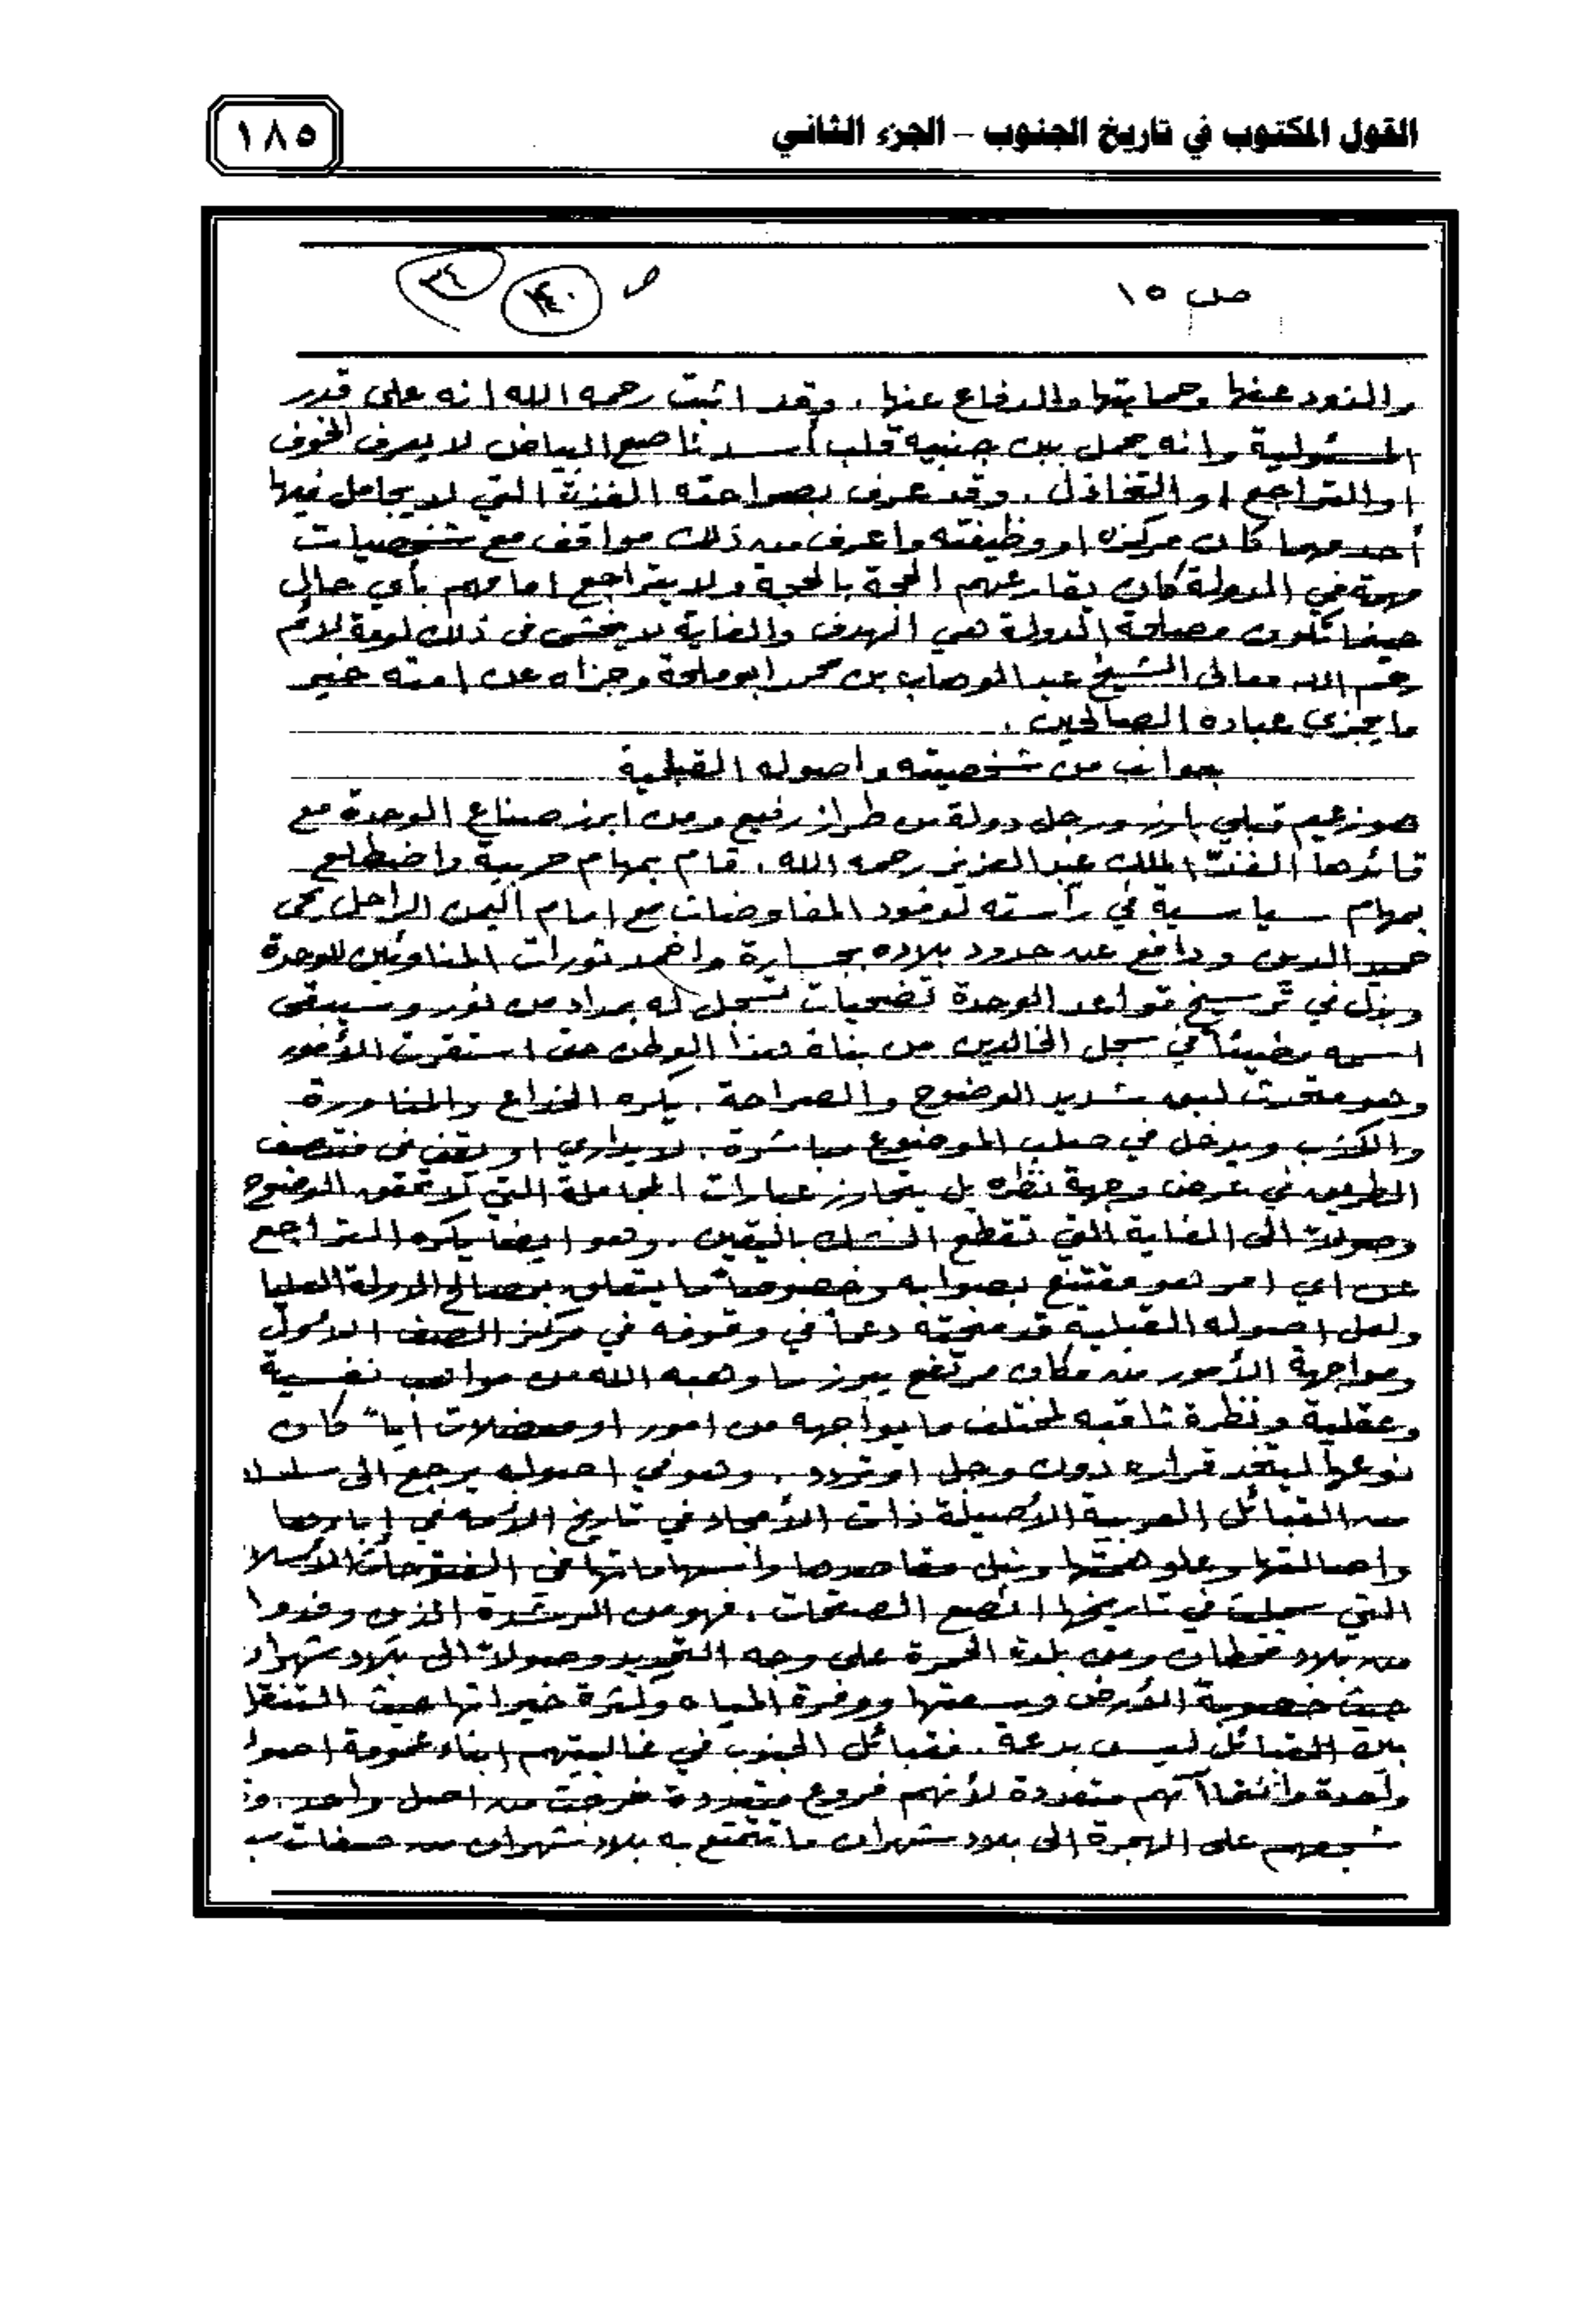 القول المكتوب في تاريخ الجنوب – الجزء الثاني
١٨٥
ص ١٥
ص ١٤٠ ٣٤
والذود عنها وحمايتها والدفاع عنها . وقد اثبت رحمه الله انه على قدر
المسئولية وانه يحمل بين جنبيه قلب أسد ناصع البياض لا يعرف الخوف
او التراجع او التخاذل . وقد عرف بصراحته الفذة التي لا يجامل فيها
أحد مهما كان مركزه او وظيفته واعرف من ذلك مواقف مع شخصيات
مهمة في الدولة كان يقارعهم الحجة بالحجة ولا يتراجع امامهم بأي حال
حينما تكون مصلحة الدولة هي الهدف والغاية لا يخشى في ذلك لومة لائم
رحم الله معالي الشيخ عبد الوهاب بن محمد ابوملحة وجزاه عن امته خير
ما يجزي عباده الصالحين .
جوانب من شخصيته واصوله القبلية
هو زعيم قبلي بارز ورجل دولة من طراز رفيع ومن ابرز صناع الوحدة مع
قائدها الفذّ الملك عبد العزيز رحمه الله . قام بمهام حربية واضطلع
بمهام سياسية في رآسته لوفود المفاوضات مع امام اليمن الراحل يحى
حميد الدين ودافع عن حدود بلاده بجسارة واخمد ثورات المناوئين للوحدة
وبذل في ترسيخ قواعد الوحدة تضحيات تسجل له بمداد من نور وسيبقى
اسمه مضيئاً في سجل الخالدين من بناة هذا الوطن حتى استقرت الأمور
وهو متحدث لبق شديد الوضوح والصراحة . يكره الخداع والمناورة
والكذب ويدخل في صلب الموضوع مباشرة . لا يداري او يقف في منتصف
الطريق في عرض وجهة نظره بل يتجاوز عبارات المجاملة التي لا تحقق الوضوح
وصولاً الى الغاية التي تقطع الشك باليقين . وهو ايضا يكره التراجع
عن اي امر هو مقتنع بصوابه وخصوصاً ما يتعلق بمصالح الدولة العليا
ولعل اصوله القبلية قد منحته دعماً في وقوفه في مركز الصف الأول
ومواجهة الأمور من مكان مرتفع يبرز ما وهبه الله من مواهب نفسية
وعقلية ونظرة ثاقبه لمختلف ما يواجهه من امور او معضلات أياً كان
نوعها ليتخذ قراره دون وجل او تردد . وهو في اصوله يرجع الى سلسلة
من القبائل العربية الأصيلة ذات الأمجاد في تاريخ الأمة في
واصالتها وعلو همتها ونبل مقاصدها واسهاماتها في الفتوحات الأسلا
التي سجلت في تاريخها انصع الصفحات . فهو من الرشدة الذين وفدوا
من بلاد قحطان ومن بلدة الحمرة على وجه التحديد وصولاً الى بلاد شهران
حيث خصوبة الأرض وسعتها ووفرة المياه وكثرة خيراتها حيث التنقل
بين القبائل ليس بدعة . فقبائل الجنوب في غالبيتهم ابناء عمومة اصوله
واحدة وانتماآتهم متعددة لأنهم فروع متعددة خرجت من اصل واحد .
شجعهم على الهجرة الى بلاد شهران ما تتمتع به بلاد شهران من صفات